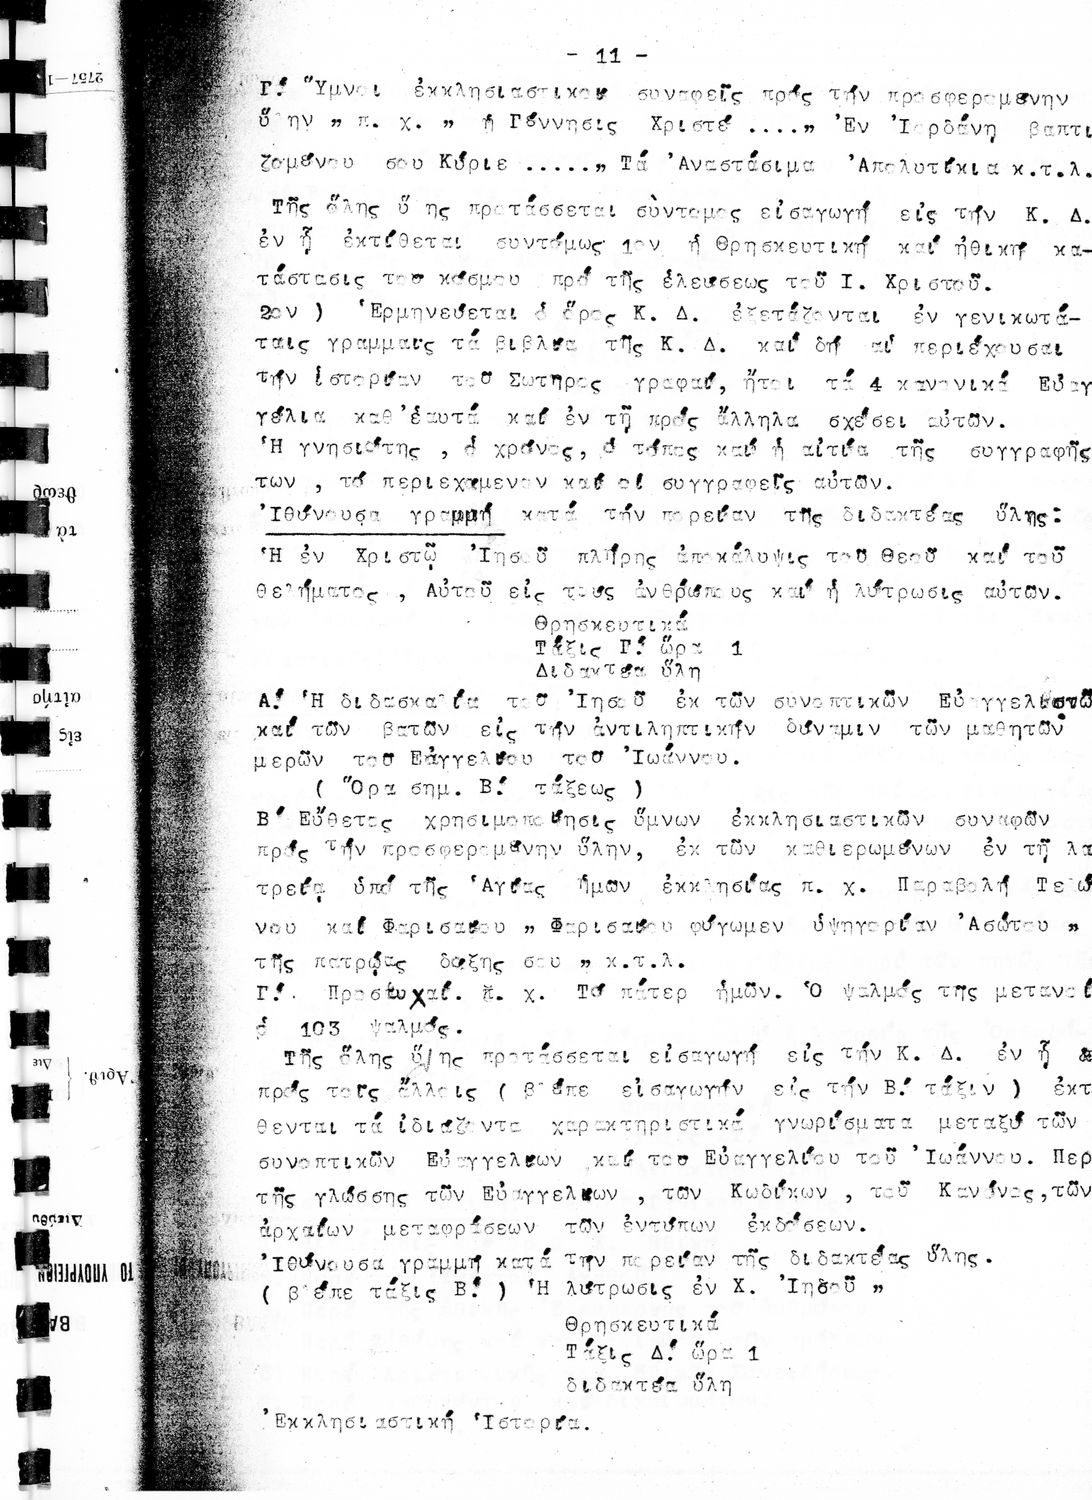 - 11 -
Γ.' Ὕμνοι ἐκκλησιαστικοί συναφεῖς πρός τήν προσφερομένην
ὕλην „ π. χ. „ ἡ Γέννησις Χριστέ ....„ Ἐν Ἰορδάνῃ βαπτι
ζομένου σου Κύριε .....„ Τά Ἀναστάσιμα Ἀπολυτίκια κ.τ.λ.
Τῆς ὅλης ὕ ης προτάσσεται σύντομος εἰσαγωγή εἰς τήν Κ. Δ.
ἐν ᾗ ἐκτίθεται συντόμως 1ον ἡ Θρησκευτική καί ἠθική κα-
τάστασις τοῦ κόσμου πρό τῆς ἐλεύσεως τοῦ Ι. Χριστοῦ.
2ον ) Ἑρμηνεύεται ὁ ὅρος Κ. Δ. ἐξετάζονται ἐν γενικωτά-
ταις γραμμαῖς τά βιβλία τῆς Κ. Δ. καί δή αἱ περιέχουσαι
τήν ἱστορίαν τοῦ Σωτῆρος γραφαί, ἤτοι τά 4 κανονικά Εὐαγ
γέλια καθ' ἑαυτά καί ἐν τῇ πρός ἄλληλα σχέσει αὐτῶν.
Ἡ γνησιότης , ὁ χρόνος, ὁ τόπος καί ἡ αἰτία τῆς συγγραφῆς
των , τό περιεχόμενον καί οἱ συγγραφεῖς αὐτῶν.
Ἰθύνουσα γραμμή κατά τήν πορείαν τῆς διδακτέας ὕλης:
Ἡ ἐν Χριστῷ Ἰησοῦ πλήρης ἀποκάλυψις τοῦ Θεοῦ καί τοῦ
θελήματος , Αὐτοῦ εἰς τούς ἀνθρώπους καί ἡ λύτρωσις αὐτῶν.
Θρησκευτικά
Τάξις Γ.' ὥρα 1
Διδακτέα ὕλη
Α.' Ἡ διδασκαλία τοῦ Ἰησοῦ ἐκ τῶν συνοπτικῶν Εὐαγγελιστῶ
καί τῶν βατῶν εἰς τήν ἀντιληπτικήν δύναμιν τῶν μαθητῶν
μερῶν τοῦ Εὐαγγελίου τοῦ Ἰωάννου.
( Ὅρα σημ. Β.' τάξεως )
Β' Εὔθετος χρησιμοποίησις ὕμνων ἐκκλησιαστικῶν συναφῶν
πρός τήν προσφερομένην ὕλην, ἐκ τῶν καθιερωμένων ἐν τῇ λα
τρείᾳ ὑπό τῆς Ἁγίας ἡμῶν ἐκκλησίας π. χ. Παραβολή Τελώ
νου καί Φαρισαίου „ Φαρισαίου φύγωμεν ὑψηγορίαν Ἀσώτου „
τῆς πατρῴας δόξης σου „ κ.τ.λ.
Γ.' Προσευχαί. π. χ. Τό πάτερ ἡμῶν. Ὁ ψαλμός της μετανοί
ὁ 103 ψαλμός.
Τῆς ὅλης ὕλης προτάσσεται εἰσαγωγή εἰς τήν Κ. Δ. ἐν ᾗ
πρός τοῖς ἄλλοις ( β έπε εἰσαγωγήν εἰς τήν Β.' τάξιν ) ἐκτ
θενται τά ἰδιάζοντα χαρακτηριστικά γνωρίσματα μεταξύ τῶν
συνοπτικῶν Εὐαγγελίων καί τοῦ Εὐαγγελίου τοῦ Ἰωάννου. Περ
τῆς γλώσσης τῶν Εὐαγγελίων , τῶν Κωδίκων , τοῦ Κανόνος,τῶν
ἀρχαίων μεταφράσεων τῶν ἐντύπων ἐκδόσεων.
Ἰθύνουσα γραμμή κατά τήν πορείαν τῆς διδακτέας ὕλης.
( β έπε τάξις Β.' ) Ἡ λύτρωσις ἐν Χ. Ἰησοῦ „
Θρησκευτικά
Τάξις Δ.' ὥρα 1
διδακτέα ὕλη
Ἐκκλησιαστική Ἱστορία.
2757—1
θεωρ
τὰ
αἰτήσ
εἰς
Ἀριθ.
Διε
Διεύθυ
ΤΟ ΥΠΟΥΡΓΕΙΟΝ
ΒΑ